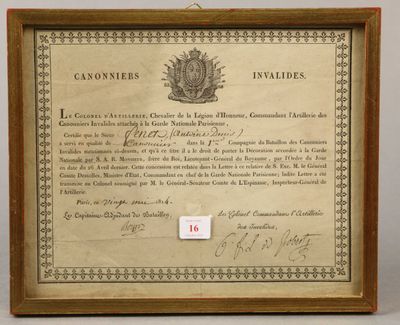 CANONNIERS INVALIDES.
LE COLONEL D'ARTILLERIE, Chevalier de la Légion d'Honneur, Commandant l'Artillerie des
Canonniers Invalides attachés à la Garde Nationale Parisienne,
Certifie que le Sieur (Antoine Denis)
a servi en qualité de Canonnier dans la 1ère Compagnie du Bataillon des Canonniers
Invalides mentionnés ci-dessus, et qu'à ce titre il a le droit de porter la Décoration accordée à la Garde
Nationale par S. A. R. MONSIEUR, frère du Roi, Lieutenant-Général du Royaume, par l'Ordre du Jour
en date du 26 Avril dernier. Cette concession est relatée dans la Lettre à ce relative de S. Exc. M. le Général
Comte Dessolles, Ministre d'État, Commandant en chef de la Garde Nationale Parisienne; ladite Lettre a été
transmise au Colonel soussigné par M. le Général-Sénateur Comte de L'Espinasse, Inspecteur-Général de
l'Artillerie.
Paris, ce Vingt mai 1816.
Les Capitaines-Adjudant du Bataillon, Le Colonel Commandant l'Artillerie
des Invalides,
16